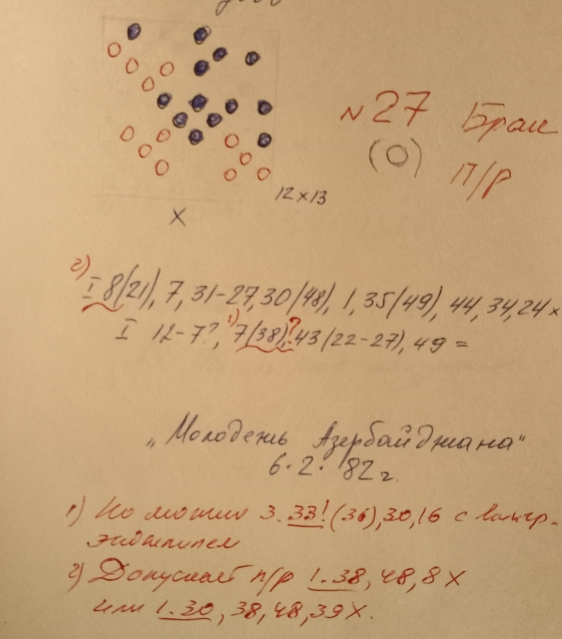 №27 Брак
(О) п/р
12x13
X
2) I 8(21), 7, 31-27, 30(48), 1, 35(49), 44, 34, 24x
I 12-7?, 1) 7(38)!?, 43(22-27), 49 =
„Молодежь Азербайджана"
6.2.82 г.
1) Но можно 3.33!(36), 30, 16 с выигр.
эндшпилем
2) Допускает п/р 1.38, 48, 8X
или 1.30, 38, 48, 39X.